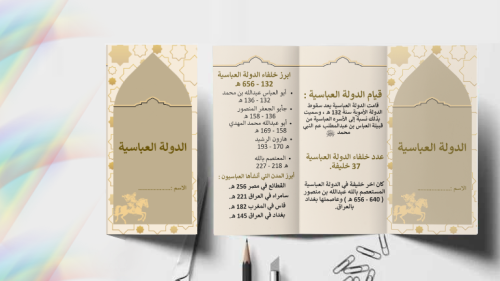 الدولة العباسية
الاسم : ............
قيام الدولة العباسية :
قامت الدولة العباسية بعد سقوط
الدولة الأموية سنة 132 هـ ، وسميت
بذلك نسبة إلى الأسرة العباسية من
قبيلة العباس بن عبدالمطلب عم النبي
محمد ﷺ
عدد خلفاء الدولة العباسية
37 خليفة.
كان اخر خليفة في الدولة العباسية
المستعصم بالله عبدالله بن منصور
( 640 - 656 هـ ) وعاصمتها بغداد
بالعراق.
ابرز خلفاء الدولة العباسية
132 - 656 هـ
أبو العباس عبدالله بن محمد
132 - 136 هـ
أبو جعفر المنصور
136 - 158 هـ
أبو عبدالله محمد المهدي
158 - 169 هـ
هارون الرشيد
170 - 193 هـ
المعتصم بالله
218 - 227 هـ
أبرز المدن التي أنشأها العباسيون :
القطائع في مصر 256 هـ
سامراء في العراق 221 هـ
فاس في المغرب 182 هـ
بغداد في العراق 145 هـ
الدولة العباسية
الاسم : ............